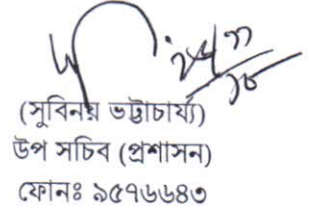 (সুবিনয় ভট্টাচার্য্য)
উপ সচিব (প্রশাসন)
ফোনঃ ৯৫৭৬৬৪৩